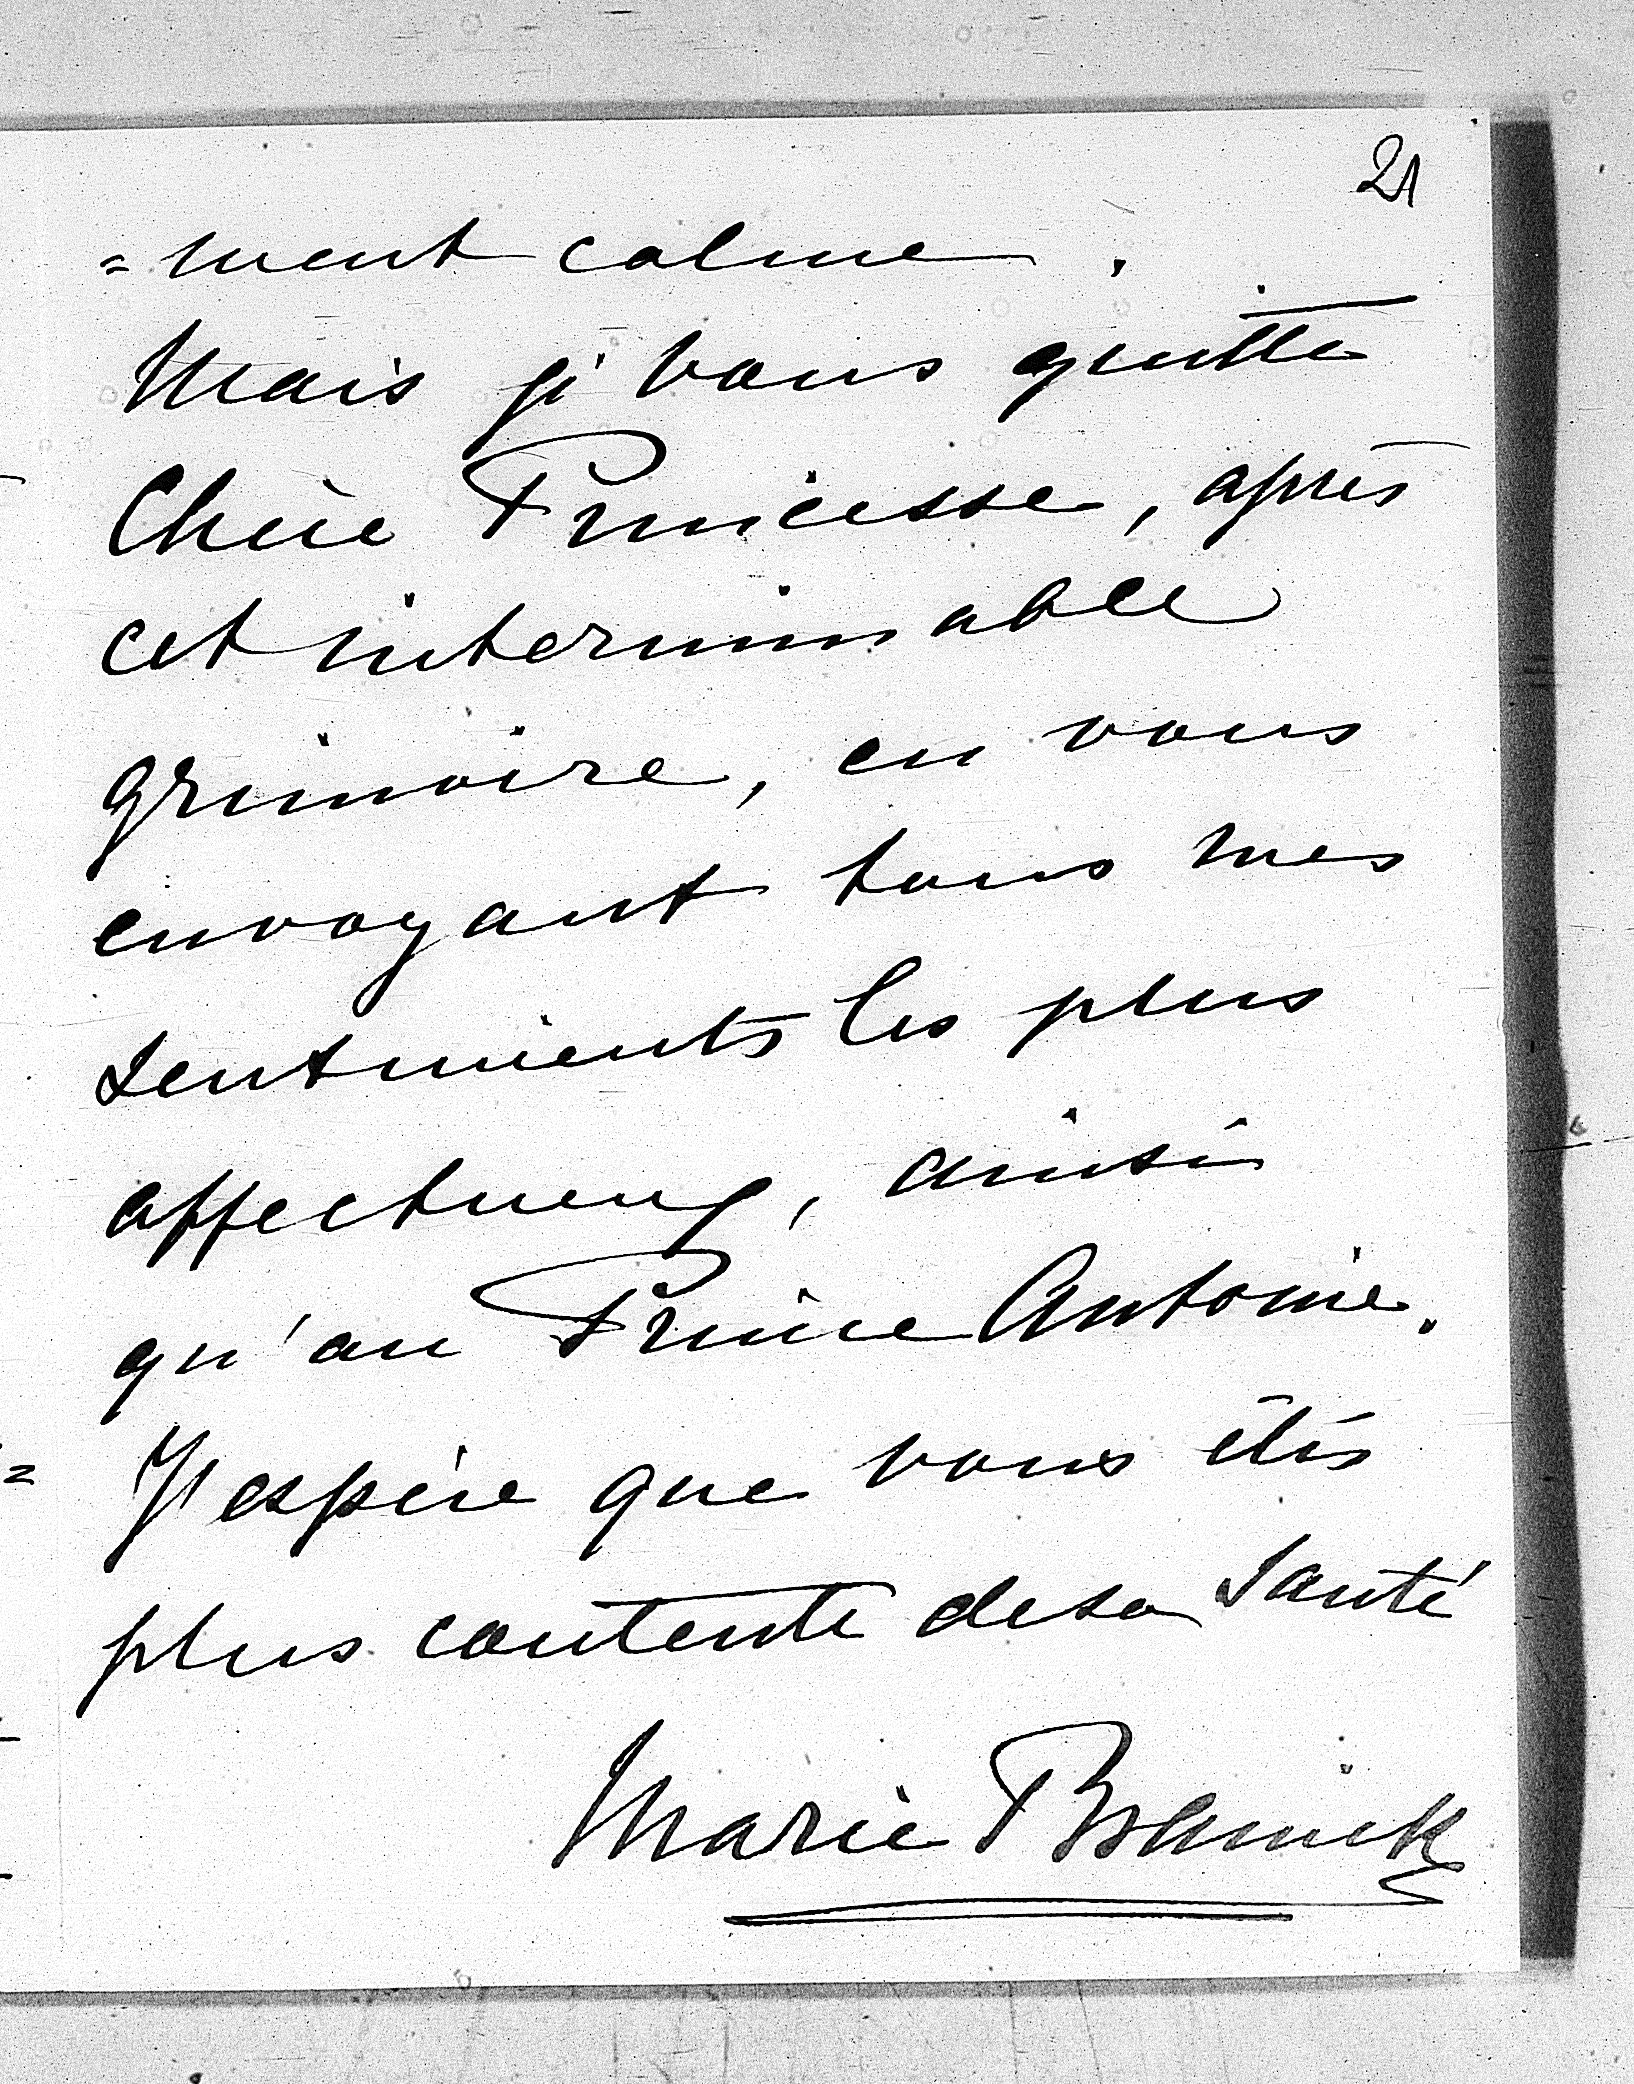 21
=ment calme.
Mais je vous quitte
Chère Princesse, après
cet interminable
grimoire, en vous
envoyant tous mes
sentiments les plus
affectueux, ainsi
qu'au Prince Antoine.
J'espère que vous êtes
plus contente de sa santé
Marie Branicka